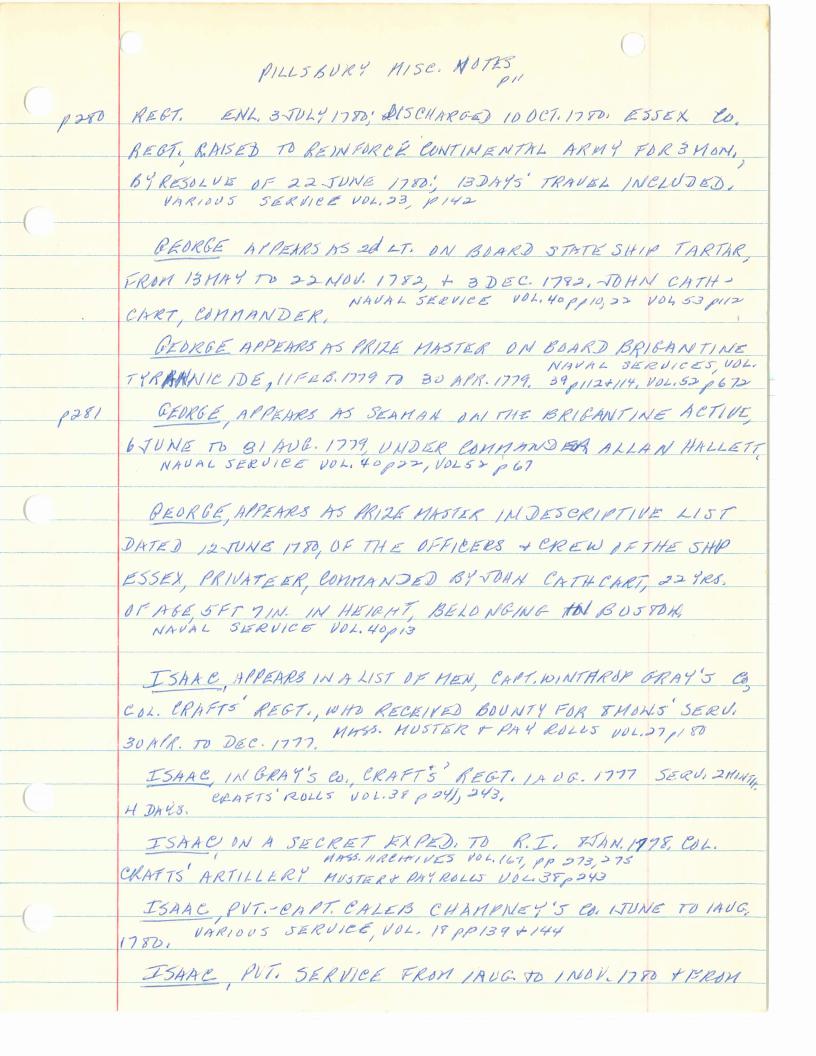 PILLSBURY MISC. NOTES
p11
p280 REGT. ENL. 3 JULY 1780; DISCHARGED 10 OCT. 1780. ESSEX CO.
REGT., RAISED TO REINFORCE CONTINENTAL ARMY FOR 3 MON.,
BY RESOLVE OF 22 JUNE 1780; 13 DAYS' TRAVEL INCLUDED.
VARIOUS SERVICE VOL. 23, p142
GEORGE APPEARS AS 2d LT. ON BOARD STATE SHIP TARTAR,
FROM 13 MAY TO 22 NOV. 1782, + 3 DEC. 1782. JOHN CATH-
NAVAL SERVICE VOL. 40 pp10, 22 VOL 53 p112
CART, COMMANDER.
GEORGE APPEARS AS PRIZE MASTER ON BOARD BRIGANTINE
NAVAL SERVICES, VOL.
TYRANNICIDE, 11 FEB. 1779 TO 30 APR. 1779. 39 p112+114, VOL. 52 p672
p281 GEORGE, APPEARS AS SEAMAN ON THE BRIGANTINE ACTIVE,
6 JUNE TO 31 AUG. 1779, UNDER COMMANDER ALLAN HALLETT.
NAVAL SERVICE VOL. 40 p22, VOL 52 p67
GEORGE, APPEARS AS PRIZE MASTER IN DESCRIPTIVE LIST
DATED 12 JUNE 1780, OF THE OFFICERS + CREW OF THE SHIP
ESSEX, PRIVATEER, COMMANDED BY JOHN CATHCART, 22 YRS.
OF AGE, 5 FT 7 IN. IN HEIGHT, BELONGING IN BOSTON.
NAVAL SERVICE VOL. 40 p13
ISAAC, APPEARS IN A LIST OF MEN, CAPT. WINTHROP GRAY'S CO,
COL. CRAFTS' REGT., WHO RECEIVED BOUNTY FOR 8 MONS' SERV.
30 APR. TO DEC. 1777. MASS. MUSTER + PAY ROLLS VOL. 27 p180
ISAAC, IN GRAY'S CO., CRAFT'S' REGT. 1 AUG. 1777 SERV. 2 MONTH.
4 DAYS. CRAFTS' ROLLS VOL. 38 p241, 243.
ISAAC, ON A SECRET EXPED. TO R.I. JAN. 1778, COL.
MASS. ARCHIVES VOL. 167, pp 273, 275
CRAFTS' ARTILLERY MUSTER + PAY ROLLS VOL. 38 p243
ISAAC, PVT.-CAPT. CALEB CHAMPNEY'S CO. 1 JUNE TO 1 AUG.
1780. VARIOUS SERVICE, VOL. 18 pp139 + 144
ISAAC, PVT. SERVICE FROM 1 AUG. TO 1 NOV. 1780 + FROM